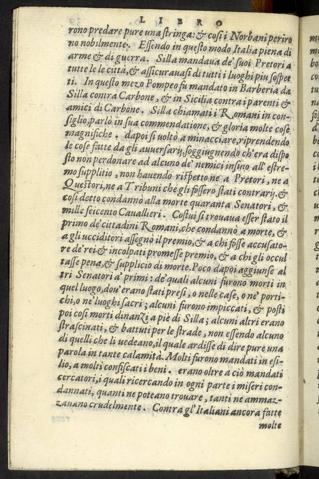 LIBRO
rono predare pure una stringa: & cosi i Norbani periro
no nobilmente. Essendo in questo modo Italia piena di
arme & di guerra. Silla mandaua de' suoi Pretori a
tutte le le città, & assicurauasi di tutti i luoghi piu sospet
ti. In questo mezo Pompeo fu mandato in Barberia da
Silla contra Carbone, & in Sicilia contra i parenti &
amici di Carbone. Silla chiamati i Romani in con-
siglio, parlò in sua commendatione, & gloria molte cose
magnifiche. dapoi si uoltò a minacciare, riprendendo
le cose fatte da gli auuersarij, soggiugnendo ch'era dispo
sto non perdonare ad alcuno de' nemici insino all'estre-
mo supplitio, non hauendo rispetto ne a Pretori, ne a
Questori, ne a Tribuni che gli fossero stati contrarij. &
cosi detto condannò alla morte quaranta Senatori, &
mille seicento Cauallieri. Costui si trouaua esser stato il
primo de' cittadini Romani, che condannò a morte, &
a gli ucciditori assegnò il premio, & a chi fosse accusato-
re de' rei & incolpati promesse premio, & a chi gli occul
tasse pena, & supplicio di morte. Poco dapoi aggiunse al
tri Senatori a' primi: de' quali alcuni furono morti in
quel luogo, dou'erano stati presi, o nelle case, o ne' porti-
chi, o ne' luoghi sacri; alcuni furono impiccati, & posti
poi cosi morti dinanzi a piè di Silla; alcuni altri erano
strascinati, & battuti per le strade, non essendo alcuno
di quelli che li uedeano, il quale ardisse di dire pure una
parola in tante calamità. Molti furono mandati in esi-
lio, a molti confiscati i beni. erano oltre a ciò mandati
cercatori, i quali ricercando in ogni parte i miseri con-
dannati, quanti ne poteano trouare, tanti ne ammaz-
zauano crudelmente. Contra gl'Italiani ancora fatte
molte